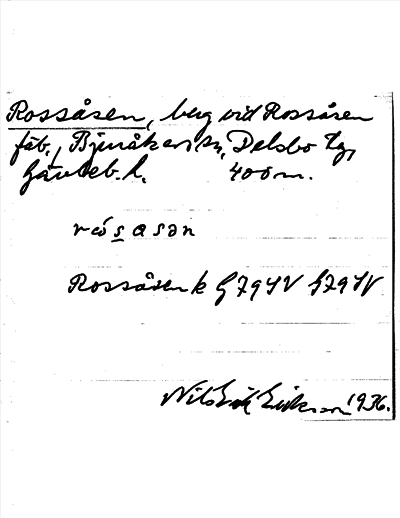 Rossåsen, berg vid Rossåsen
fäb., Bjuråkers sn, Delsbo tg,
Gävleb. l. 400 m.
rɷ́s̲asən
Rossåsen k G7945V G794SV
Nils Erik Eriksson 1936.